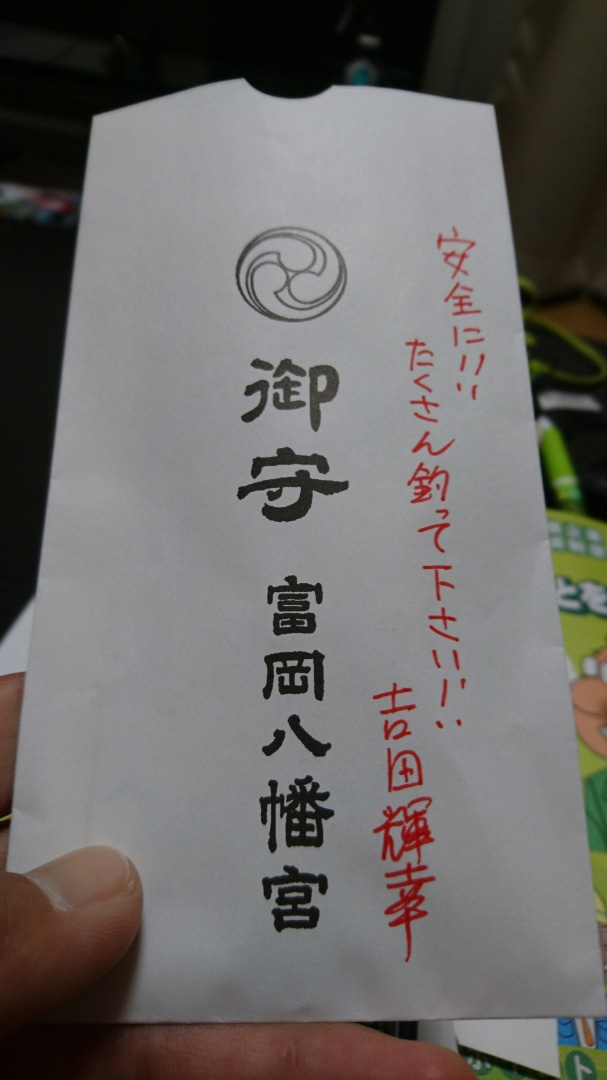 安全に!!!
たくさん釣って下さい!!!
吉田輝幸
御守
富岡八幡宮
とを
ト